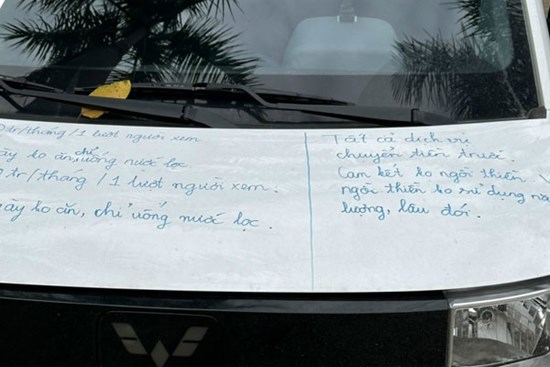 tr/tháng /1 lượt người xem
ko ăn, chỉ uống nước lọc
tr/tháng /1 lượt người xem.
ko ăn, chỉ uống nước lọc.
Tất cả dịch vụ
chuyển tiền trước.
Cam kết ko ngồi thiền
ngồi thiền ko sử dụng
lượng, lâu đời.